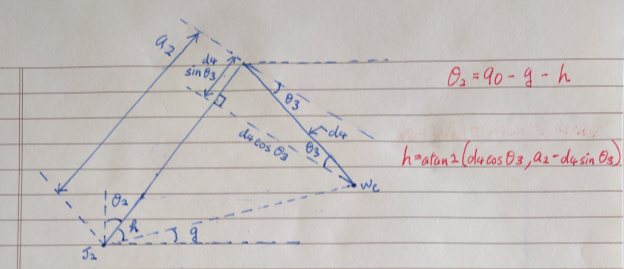 a2
d4
sinθ3
θ3
d4
θ3
d4cosθ3
wc
θ2
h
g
J2
θ2 = 90 - g - h
h = atan2(d4cosθ3, a2 - d4sinθ3)